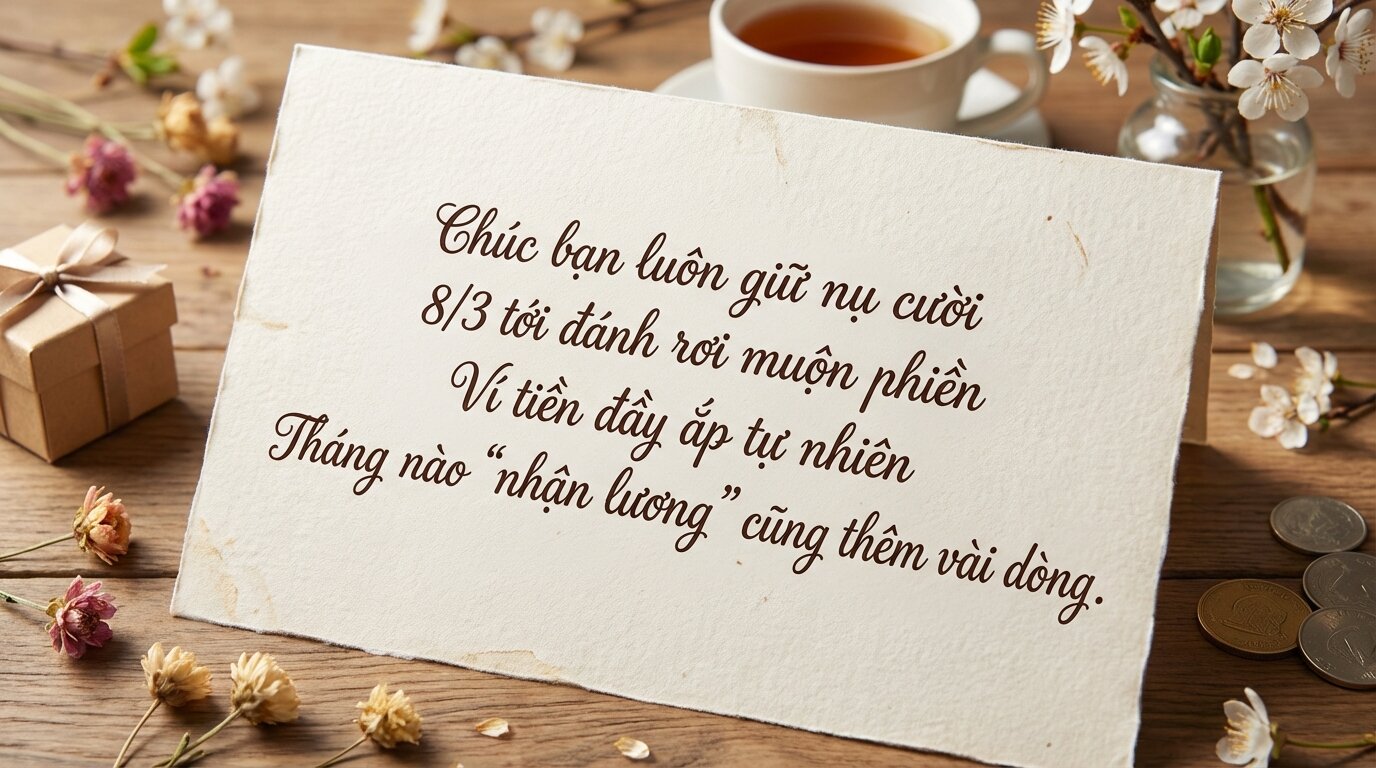 Chúc bạn luôn giữ nụ cười
8/3 tới đánh rơi muộn phiền
Ví tiền đầy ắp tự nhiên
Tháng nào “nhận lương” cũng thêm vài dòng.